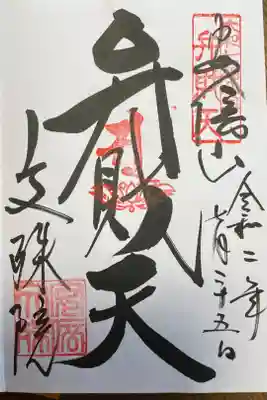 安倍山
令和二年
月二十五日
弁財天
文殊院